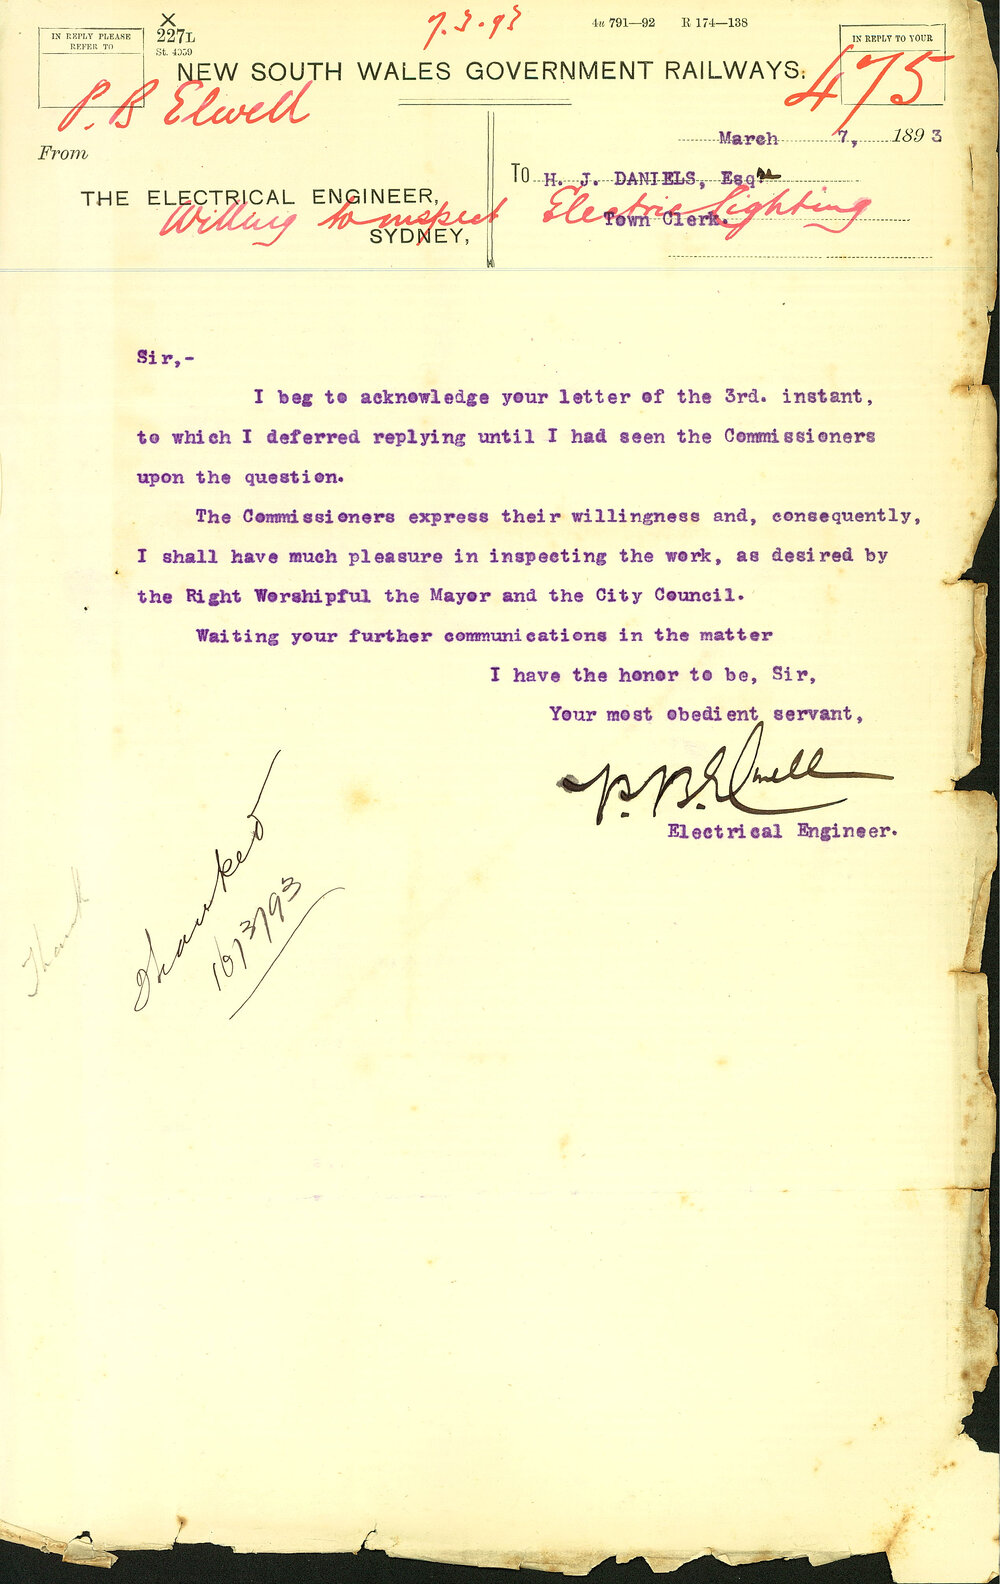 7.3.93
4u 791—92 R 174—138
X
227L
St. 4059
IN REPLY PLEASE
REFER TO
IN REPLY TO YOUR
475
NEW SOUTH WALES GOVERNMENT RAILWAYS.
P. B Elwell
March 7, 1893
From
THE ELECTRICAL ENGINEER,
SYDNEY,
To H. J. DANIELS, Esqre
Town Clerk.
Willing to inspect Electric Lighting
Sir,-
I beg to acknowledge your letter of the 3rd. instant,
to which I deferred replying until I had seen the Commissioners
upon the question.
The Commissioners express their willingness and, consequently,
I shall have much pleasure in inspecting the work, as desired by
the Right Worshipful the Mayor and the City Council.
Waiting your further communications in the matter
I have the honor to be, Sir,
Your most obedient servant,
P. B. Elwell
Electrical Engineer.
Thank
Thanked
16/3/93